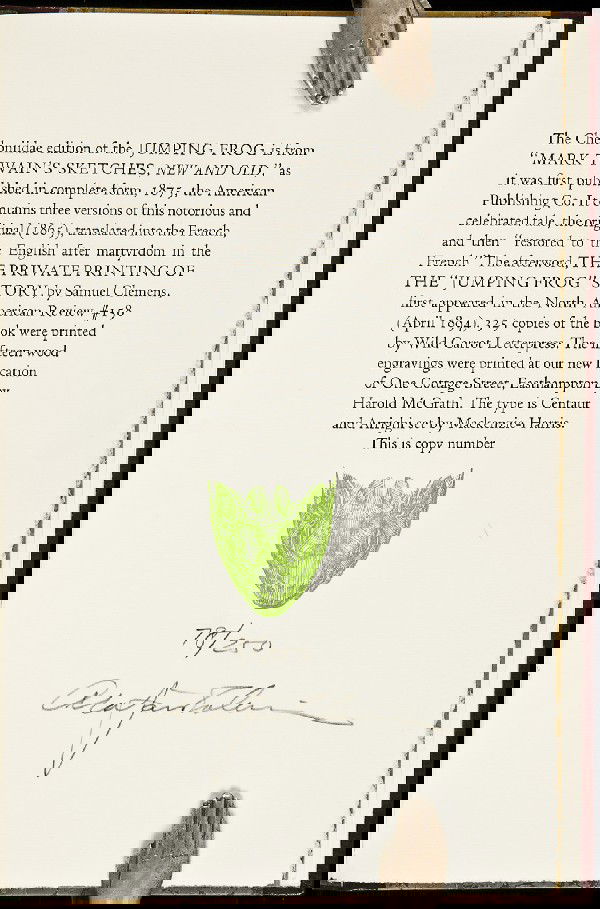 The Cheloniidae edition of the JUMPING FROG is from
"MARK TWAIN'S SKETCHES, NEW AND OLD," as
it was first published in complete form, 1875, the American
Publishing Co. It contains three versions of this notorious and
celebrated tale, the original (1865), translated into the French,
and then "restored to the English after martyrdom in the
French." The afterword, THE PRIVATE PRINTING OF
THE "JUMPING FROG" STORY, by Samuel Clemens,
first appeared in the North American Review #458
(April 1894). 325 copies of the book were printed
by Wild Carrot Letterpress. The fifteen wood
engravings were printed at our new location
of One Cottage Street, Easthampton, by
Harold McGrath. The type is Centaur
and Arrighi set by Mackenzie-Harris.
This is copy number
/200